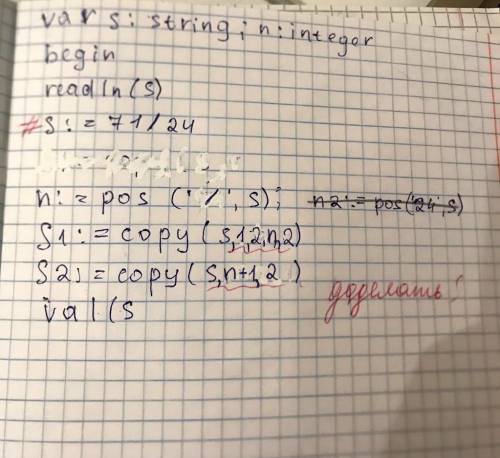 var s: string; n: integer
begin
readln(s)
#s:=71/24
n:=pos('/', s); n2:=pos('24', s)
S1:=copy(s,1,2,n,2)
S2:=copy(s,n+1,2)
доделать!
val(s